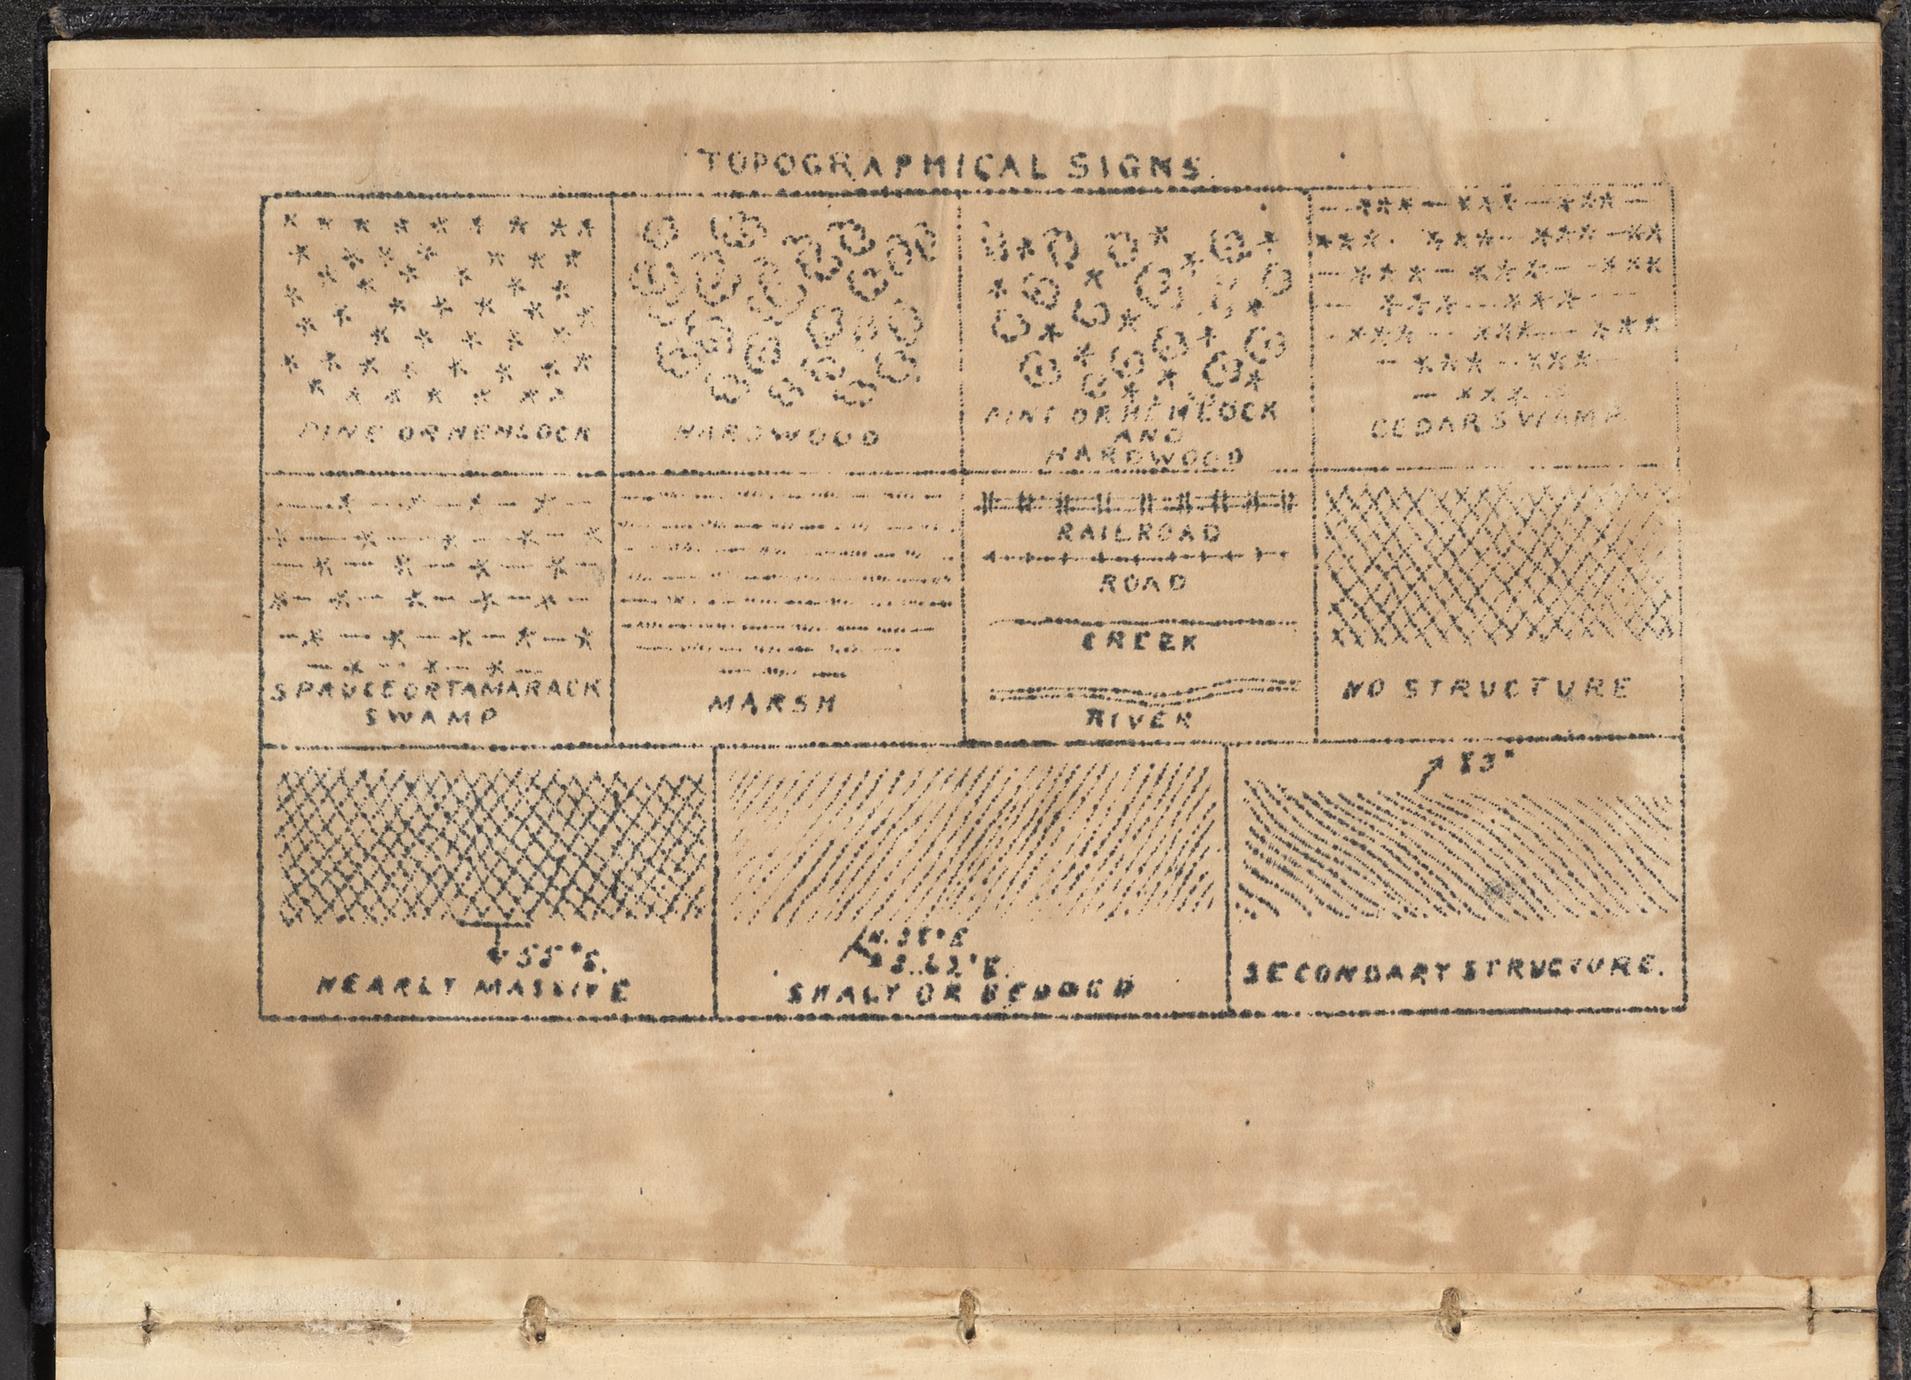 TOPOGRAPHICAL SIGNS.
PINE OR HEMLOCK
HARDWOOD
PINE OR HEMLOCK
AND
HARDWOOD
CEDAR SWAMP
SPRUCE OR TAMARACK
SWAMP
MARSH
RAILROAD
ROAD
CREEK
RIVER
NO STRUCTURE
55° S.
NEARLY MASSIVE
E
S. 62° E.
SHALY OR BEDDED
83°
SECONDARY STRUCTURE.